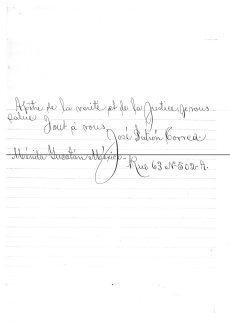 Apôtre de la vérité et de la Justice, je vous
salue
Tout à vous,
José Correa
Mérida Yucatán México-
Rue 63 Nº 502-A.